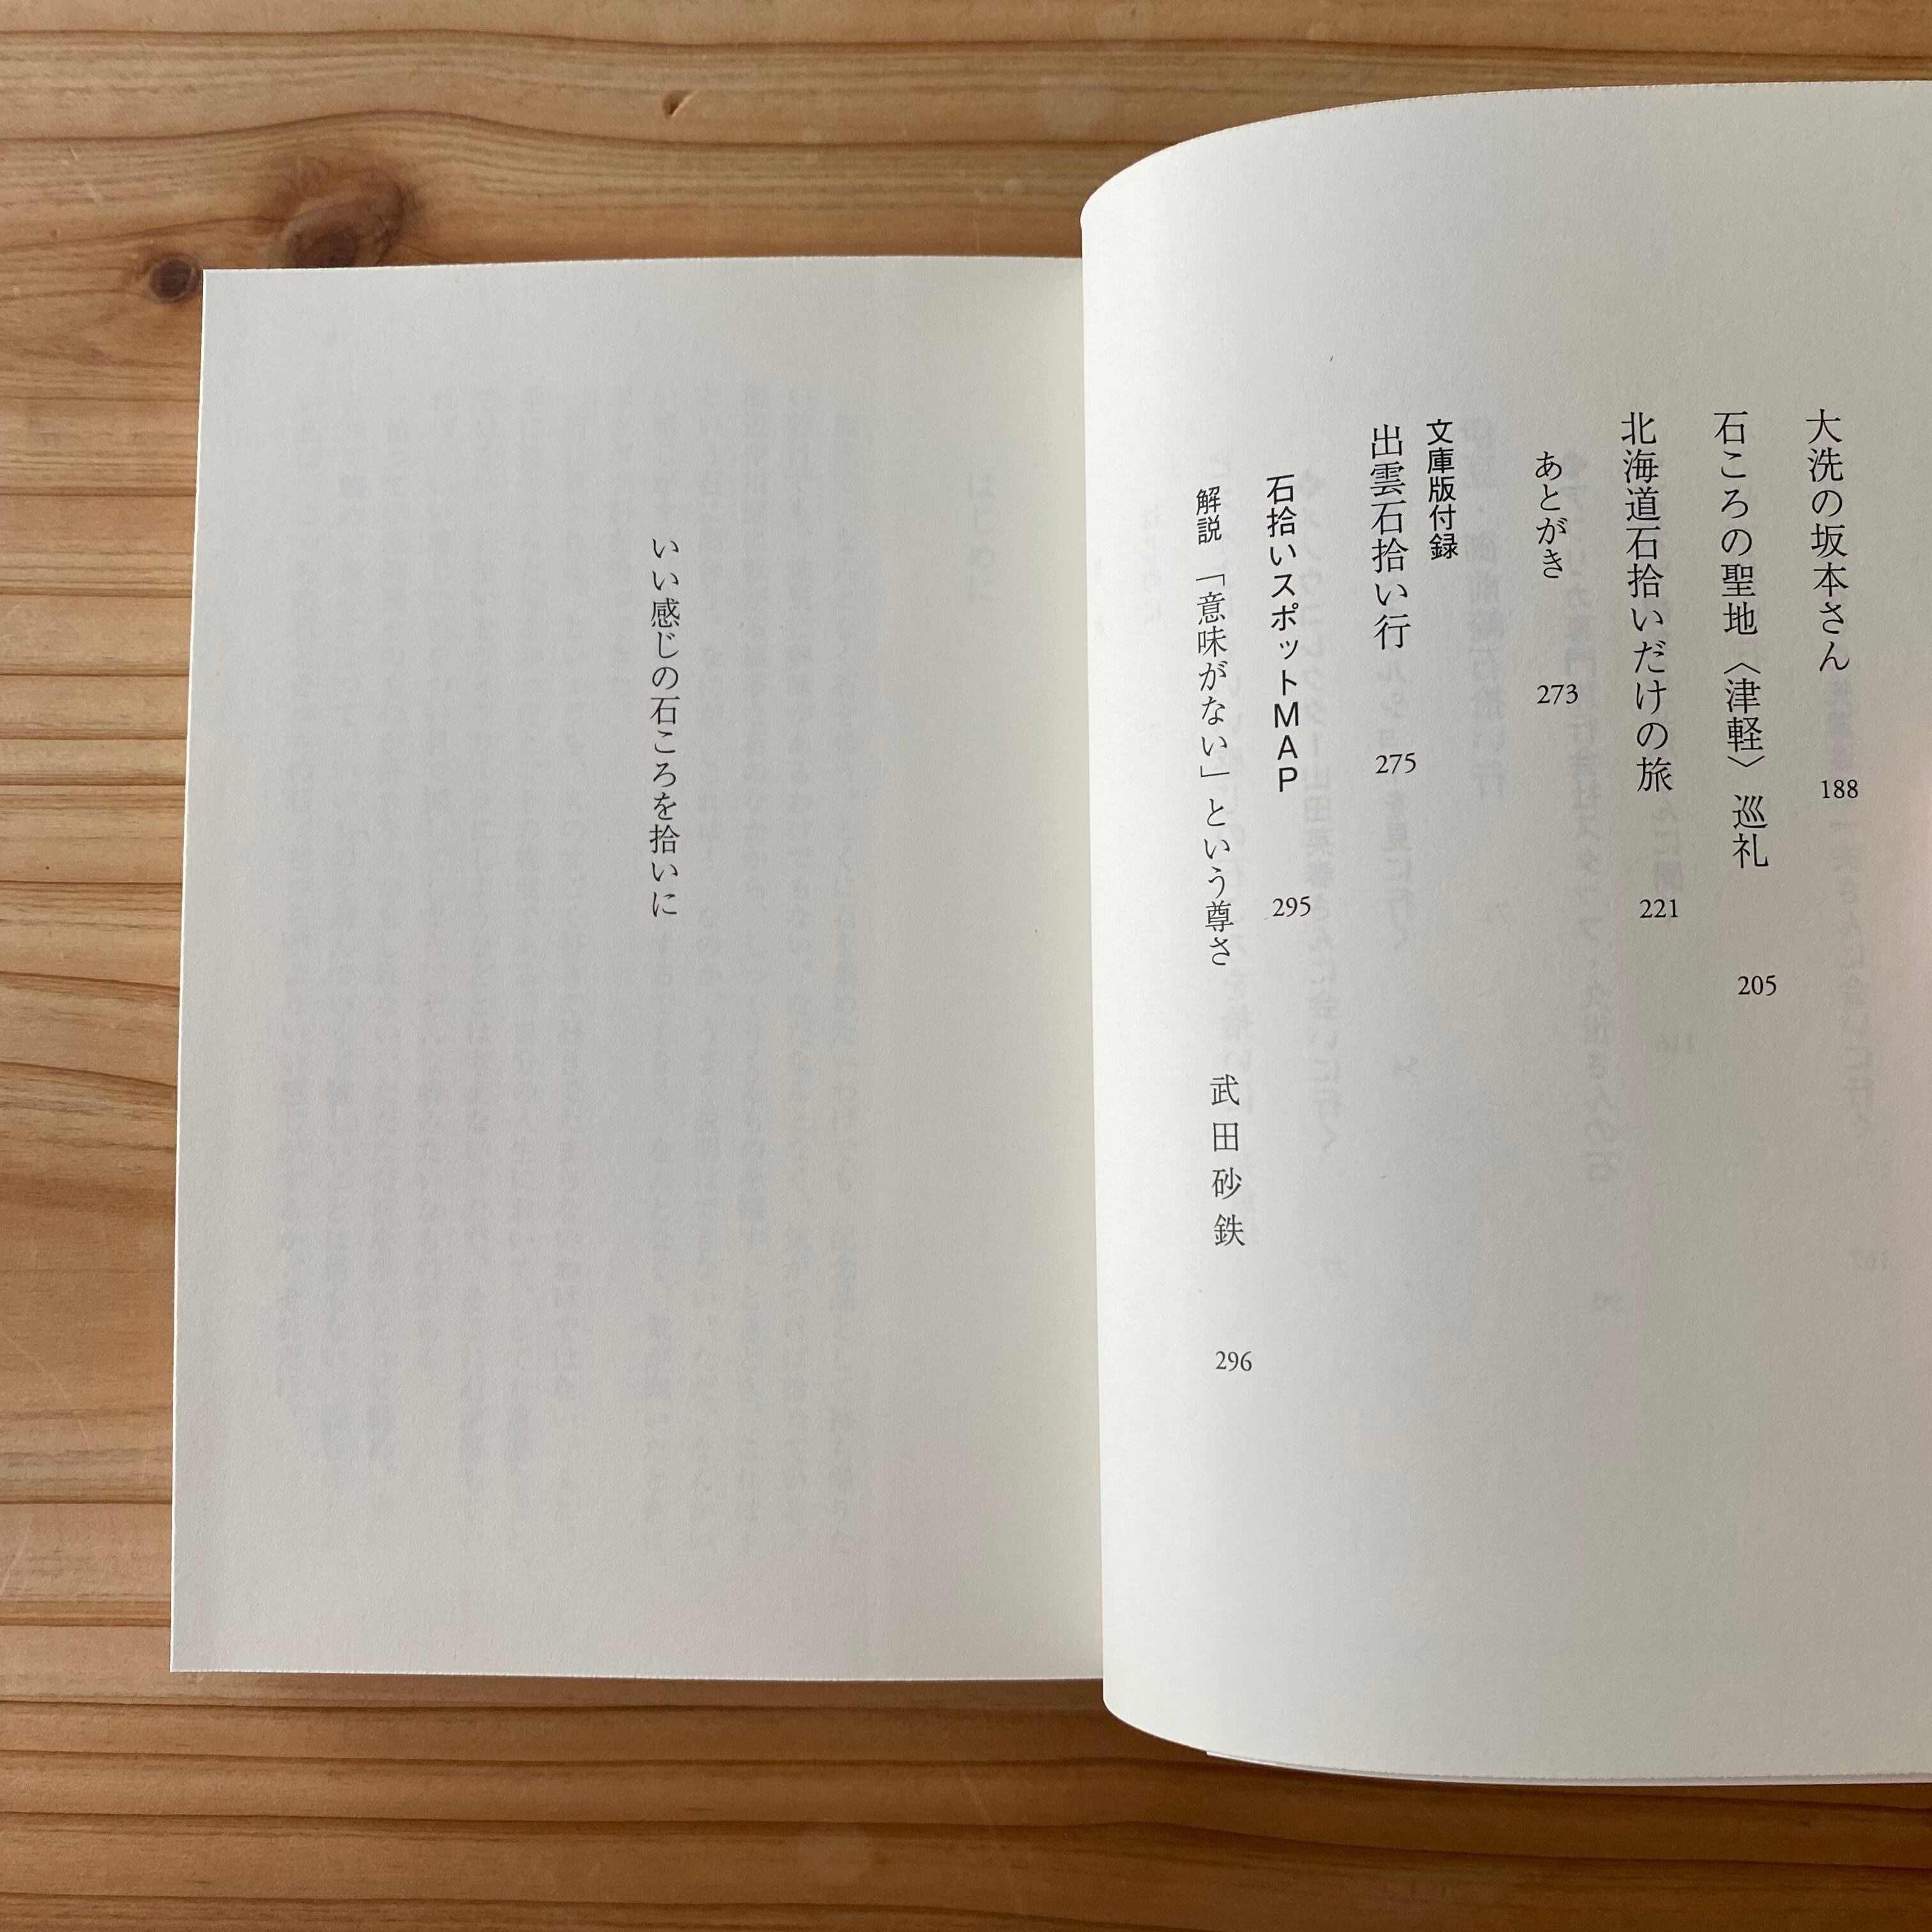 大洗の坂本さん 188
石ころの聖地〈津軽〉巡礼 205
北海道石拾いだけの旅 221
あとがき 273
文庫版付録
出雲石拾い行 275
石拾いスポットMAP 295
解説 「意味がない」という尊さ 武田砂鉄 296
いい感じの石ころを拾いに